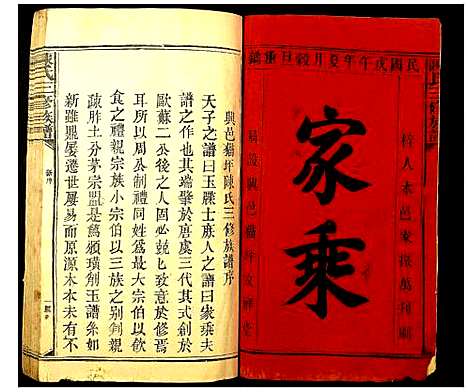 民國戊午年夏月穀旦重鐫
梓人本邑家振萬刊刷
家乘
興邑貓坪陳氏三修族譜序
天子之譜曰玉牒士庶人之譜曰家乘夫
譜之作也其端肇於唐虞三代其式創於
歐蘇二公後之人罔敢
致意於修焉
耳所以周公制禮同姓為最大宗伯以飲
食之禮親宗族小宗伯以三族之別
親
疏胙土分茅宗盟是萬頒璜劍玉譜系如
新雖鼎屢遷世屢易而原源本本未有不
陳氏三修族譜
新序